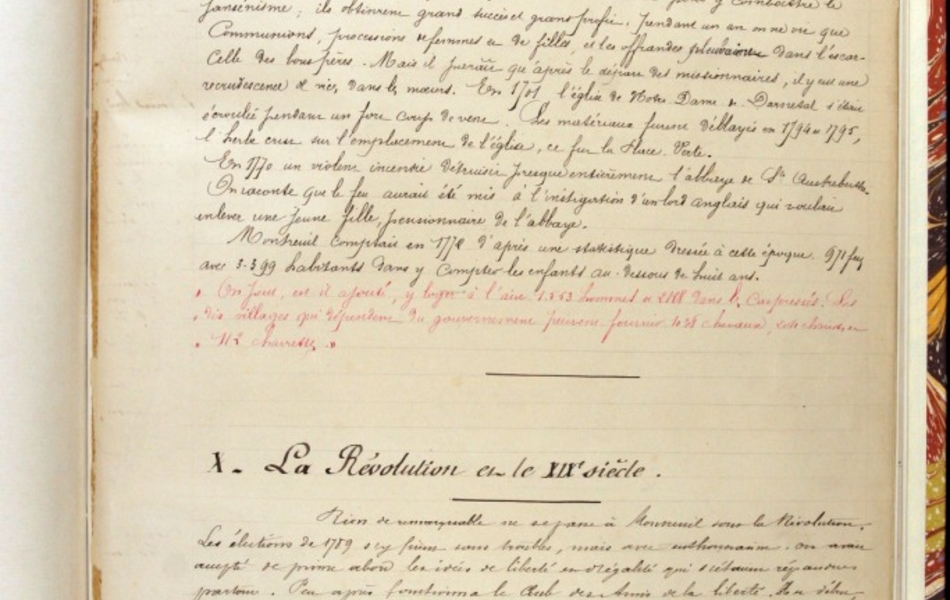 Jansénisme ; ils obtinrent grand succès et grand profit. Pendant un an on ne vit que
Communions, processions de femmes et de filles, et les offrandes pleuvaient dans l'escar-
celle des bons pères. Mais il paraît qu'après le départ des missionnaires, il y eut une
recrudescence de vices dans les mœurs. En 1701 l'église de Notre Dame de Darnetal s'était
écroulée pendant un fort coup de vent. Les matériaux furent déblayés en 1794 et 1795,
l'herbe crut sur l'emplacement de l'église, ce fut la Place Verte.
En 1770 un violent incendie détruisit presque entièrement l'abbaye de Ste Austreberthe.
On raconte que le feu aurait été mis à l'instigation d'un lord anglais qui voulait
enlever une jeune fille, pensionnaire de l'abbaye.
Montreuil comptait en 1778 d'après une statistique dressée à cette époque. 971 feux
avec 3.399 habitants sans y compter les enfants au-dessous de huit ans.
" On peut, est-il ajouté, y loger à l'aise 1.553 hommes et 2118 dans les . Les
" dix villages qui dépendent du gouvernement peuvent fournir chevaux, chariots et
" 112 charrettes "
X _ La Révolution et le XIXe siècle .
Rien de remarquable ne se passe à Montreuil sous la Révolution.
Les élections de 1789 s'y firent sans troubles, mais avec enthousiasme. on avait
accepté de prime abord les idées de liberté et d'égalité qui s'étaient répandues
partout. Peu après fonctionna le Club des Amis de la liberté.